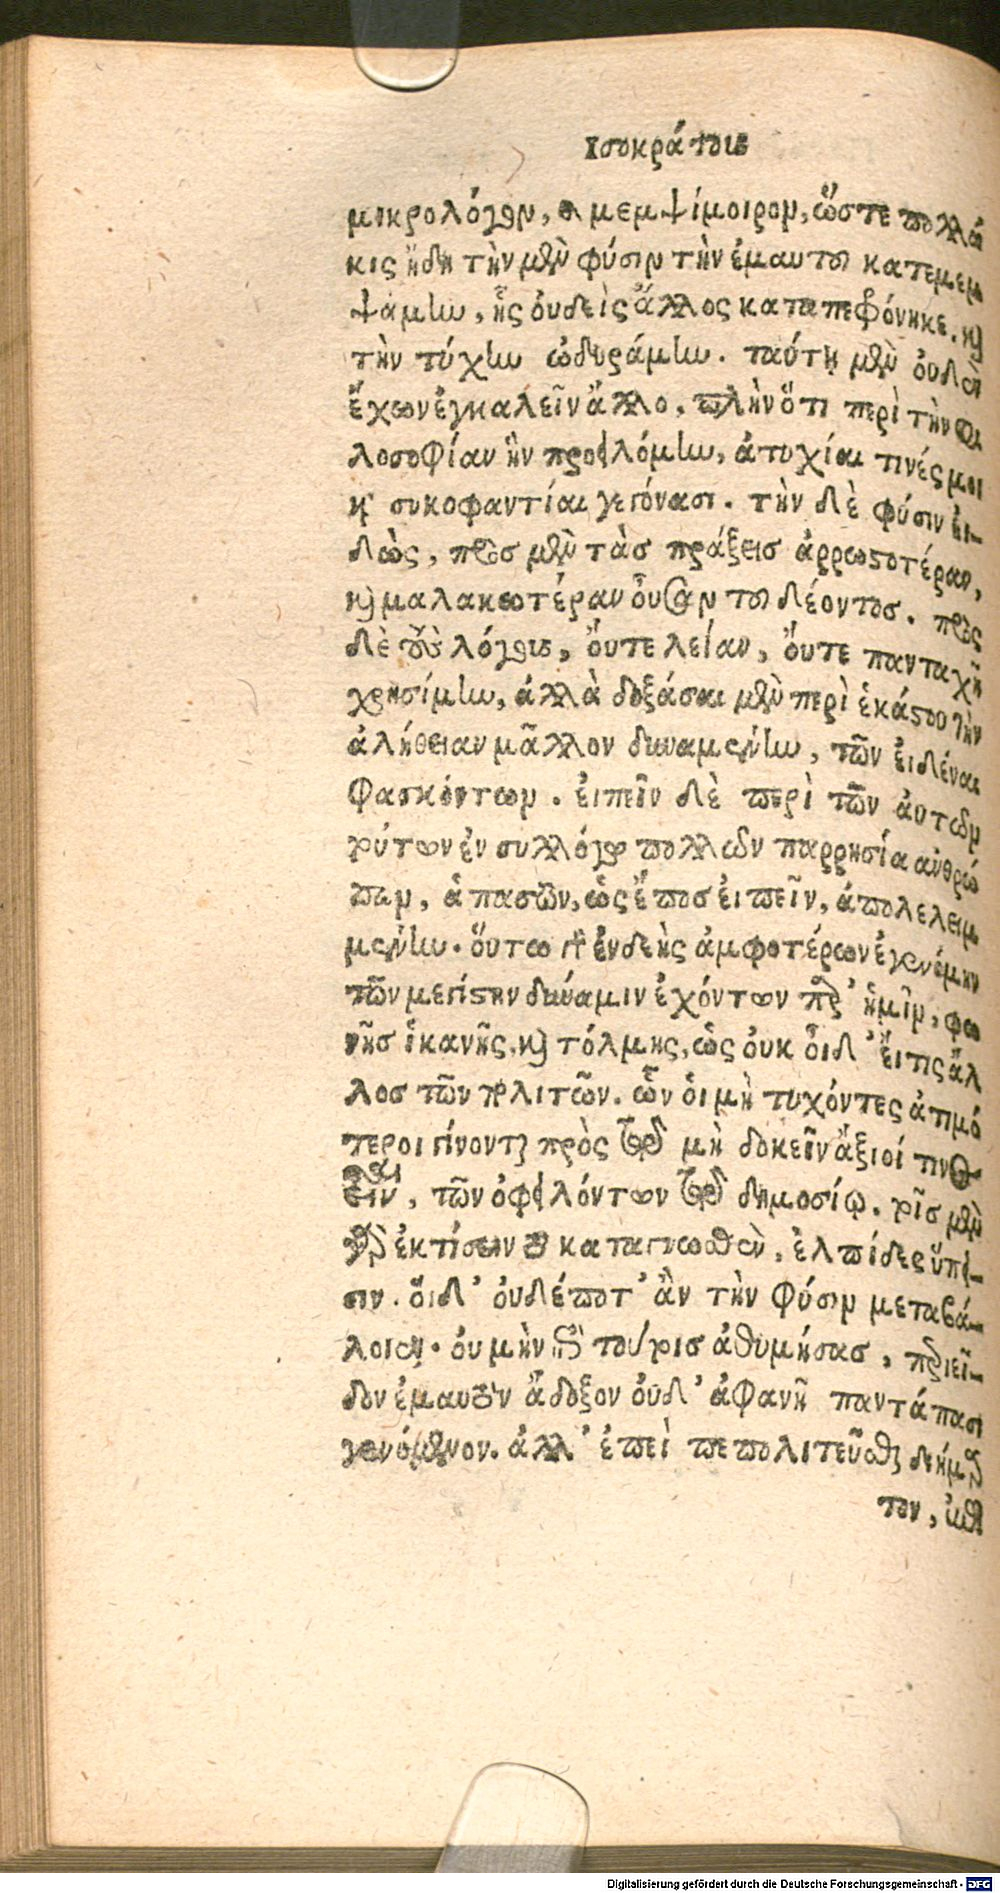 Ισοκράτους
μικρολόγον, καὶ μεμψίμοιρον, ὥστε πολλά
κις ἤδη τὴν μὲν φύσιν τὴν ἐμαυτοῦ κατεμεμ
ψάμην, ἧς οὐδεὶς ἄλλος καταπεφρόνηκε. καὶ
τὴν τύχην ὠδυράμην. ταύτῃ μὲν οὐδὲν
ἔχων ἐγκαλεῖν ἄλλο, πλὴν ὅτι περὶ τὴν φι
λοσοφίαν ἣν προειλόμην, ἀτυχίαι τινές μοι
καὶ συκοφαντίαι γεγόνασι. τὴν δὲ φύσιν εἰ-
δὼς, πρὸς μὲν τὰς πράξεις ἀρρωστοτέραν,
καὶ μαλακωτέραν οὖσαν τοῦ δέοντος. πρὸς
δὲ τοὺς λόγους, οὔτε λείαν, οὔτε πανταχῆ
χρησίμην, ἀλλὰ δοξάσαι μὲν περὶ ἑκάστου τὴν
ἀλήθειαν μᾶλλον δυναμένην, τῶν εἰδέναι
φασκόντων. εἰπεῖν δὲ περὶ τῶν αὐτῶν
τούτων ἐν συλλόγῳ πολλῶν παρρησίᾳ ἀνθρώ
πων, ἁπασῶν, ὡς ἔπος εἰπεῖν, ἀπολελειμ
μένην. οὕτω γὰρ ἐνδεὴς ἀμφοτέρων ἐγενόμην
τῶν μεγίστην δύναμιν ἐχόντων παρ' ἡμῖν, φω
νῆς ἱκανῆς, καὶ τόλμης, ὡς οὐκ οἶδ' εἴ τις ἄλ
λος τῶν πολιτῶν. ὧν οἱ μὴ τυχόντες ἀτιμό
τεροι γίνονται πρὸς τὸ μὴ δοκεῖν ἄξιοί τινος
εἶναι, τῶν ὀφειλόντων τῷ δημοσίῳ. τοῖς μὲν
γὰρ ἐκτίσειν τὸ καταγνωσθὲν, ἐλπίδες ὕπει-
σιν. οἵδ' οὐδέποτ' ἂν τὴν φύσιν μεταβά-
λοιεν. οὐ μὴν ἐπὶ τούτοις ἀθυμήσας, περιεῖ-
δον ἐμαυτὸν ἄδοξον οὐδ' ἀφανῆ παντάπασι
γενόμενον. ἀλλ' ἐπεὶ πεπολιτεῦσθαι διήμαρ
τον,